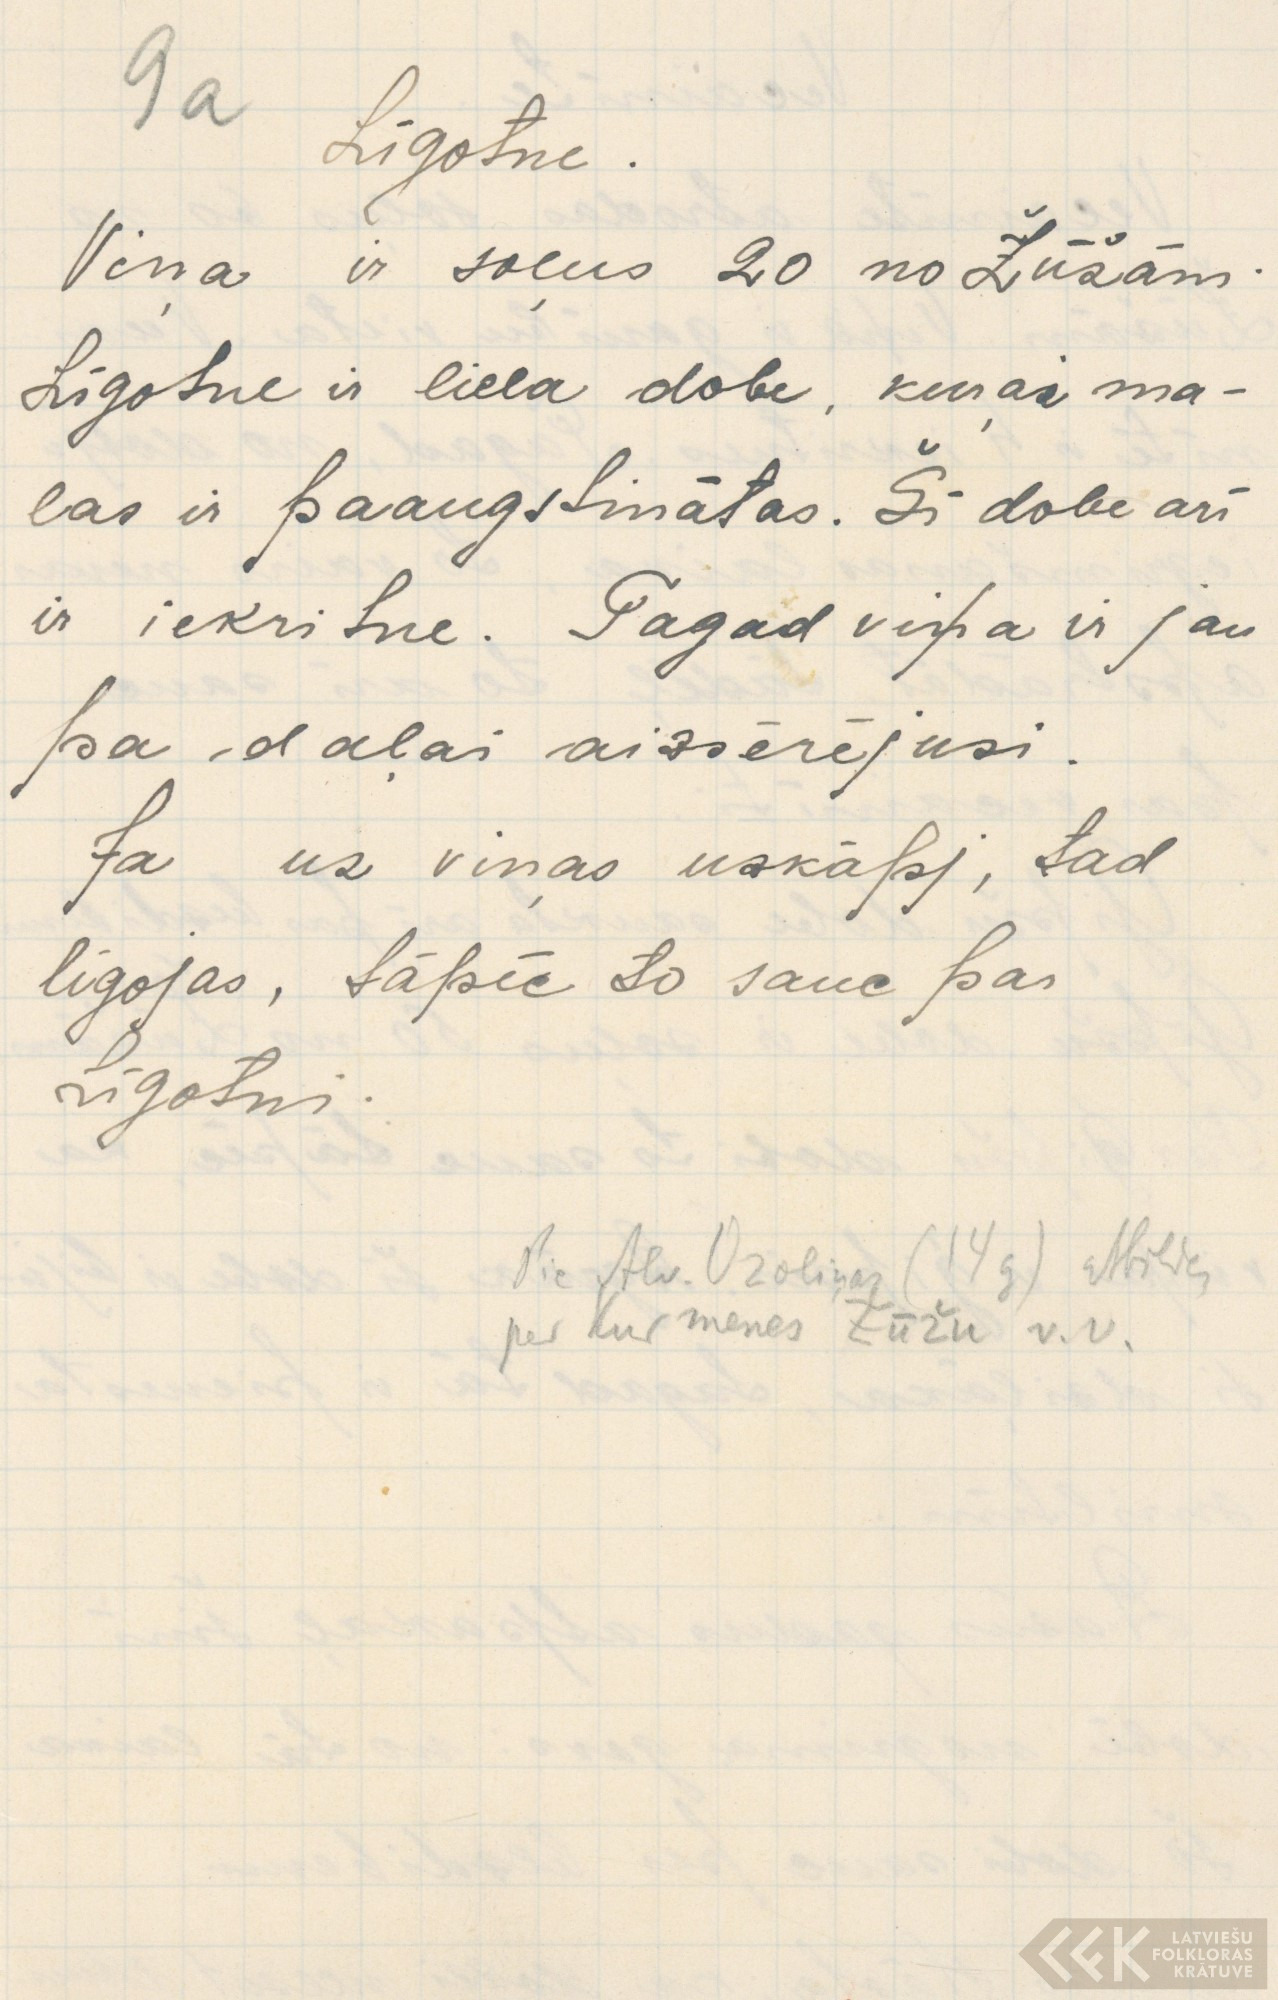 9a
Līgotne.
Viņa ir soļus 20 no Žūžām.
Līgotne ir liela dobe, kuŗai ma-
las ir paaugstinātas. Šī dobe arī
ir iekritne. Tagad viņa ir jau
pa daļai aizsērējusi.
Ja uz viņas uzkāpj, tad
līgojas, tāpēc to sauc par
Līgotni.
Pie Alv. Ozoliņas (14 g)
per Kurmenes Žūžu v.v.
LATVIEŠU
FOLKLORAS
KRĀTUVE